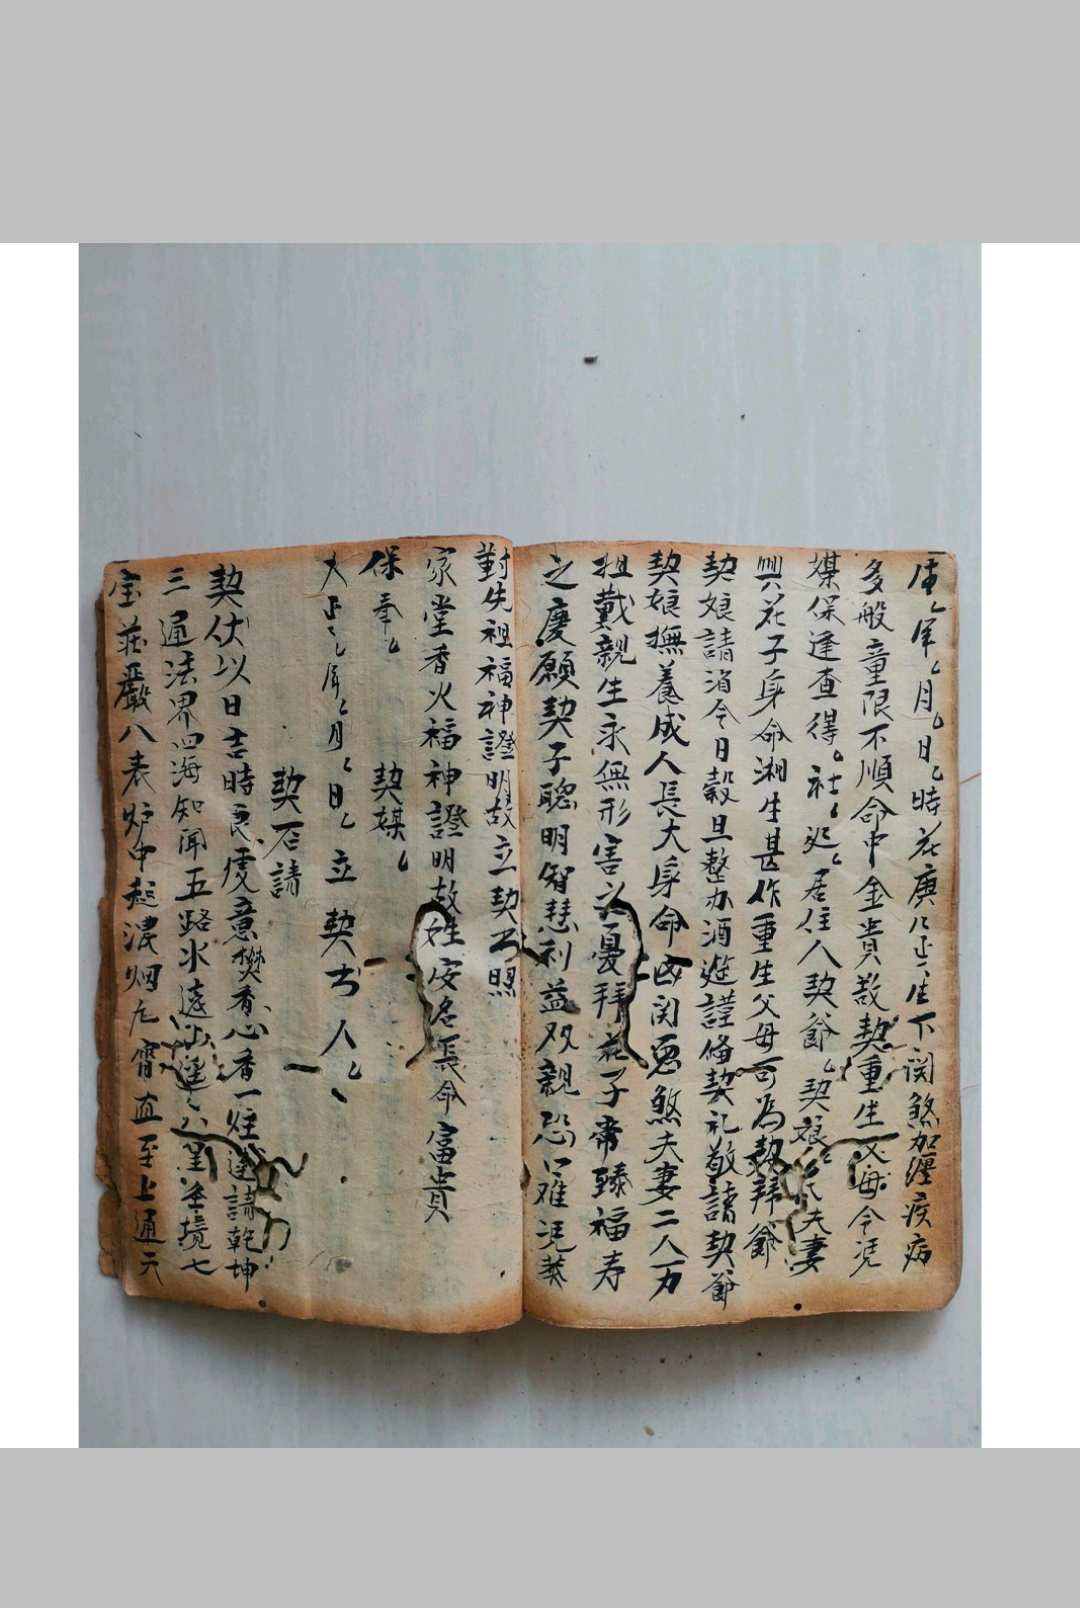 年月日時花庚八正生下関煞加纏疾病
多般童限不順命中金貴敬契重生父母今凴
媒保逢查得社居住人契爺契娘氏夫妻
興花子身命湘生甚作重生父母可為契拜爺
契娘請消今日穀旦整办酒筵謹俻契礼敬請契爺
契娘撫養成人長大身命凶関惡煞夫妻二人力
担戴親生永無形害之憂拜花子常臻福寿
之慶願契子聰明智慧利益双親恐难凴
對先祖福神證明故立契書照
家堂香火福神證明故姓安名長命富貴
保奉 契媒
大 年月日立契書人
契 請
契伏以日吉時良虔意焚香心香一炷達請乾坤
三通法界四海知聞五路 遠 境七
宝莊嚴八表炉中起濃烟 霄直至上通天